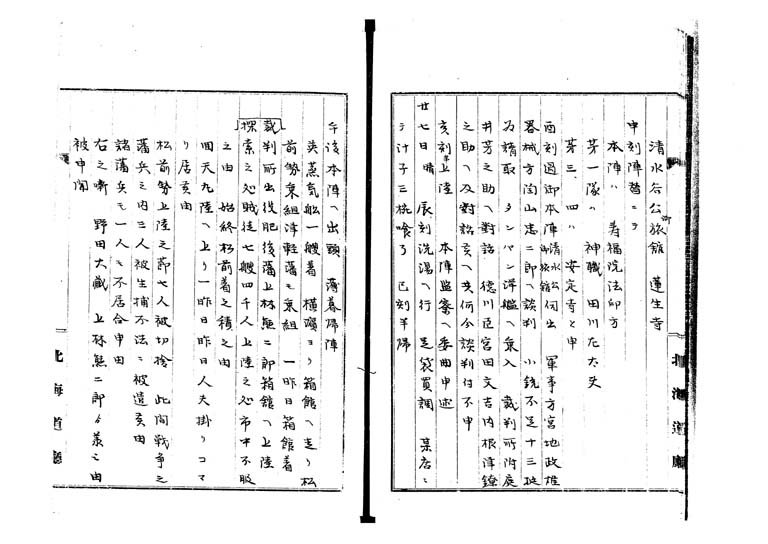 清水谷公御旅館　蓮生寺
申刻陣替ニテ
本陣ハ　寿福院法印方
第一隊ハ　神職　田川左太夫
第三、四ハ　安定寺ト申
酉刻過御本陣清水公御旅館伺出　軍事方宮地政雄
器械方向山忠二郎ヘ談判　小銃不足十三挺
為請取　タンバン洋艦ヘ乗入　裁判所附庭
井芳之助ヘ対話　徳川臣宮田文吉内根津鐐
之助ヘ及対話亥ヘ共何分談判付不申
亥刻上陸　本陣監察ヘ委曲申述
廿七日晴　辰刻洗湯ヘ行　足袋買調　某店ニ
テ汁子三椀喰ろ　已刻半帰
午後本陣ヘ出頭　薄暮帰陣
英蒸気船一艘着　横濱ヨリ箱館ヘ走リ松
前勢乗組津軽藩モ乗組　一昨日箱館着
裁判所出役肥後藩上林熊二郎箱館ヘ上陸
探索之処賊徒七艘四千人上陸之処市中不服
之由　始終松前着之積之由
回天丸陸ヘ上リ一昨日昨日人夫掛リコマ
リ居亥由
松前勢上陸之節七人被切捨　此間戦争之
藩兵之内三人被生捕不法ニ被遣亥由
諸藩兵モ一人モ不居合申由
右之噺　野田大蔵　上林熊二郎ゟ承之由
被申聞
北海道廳
北海道廳